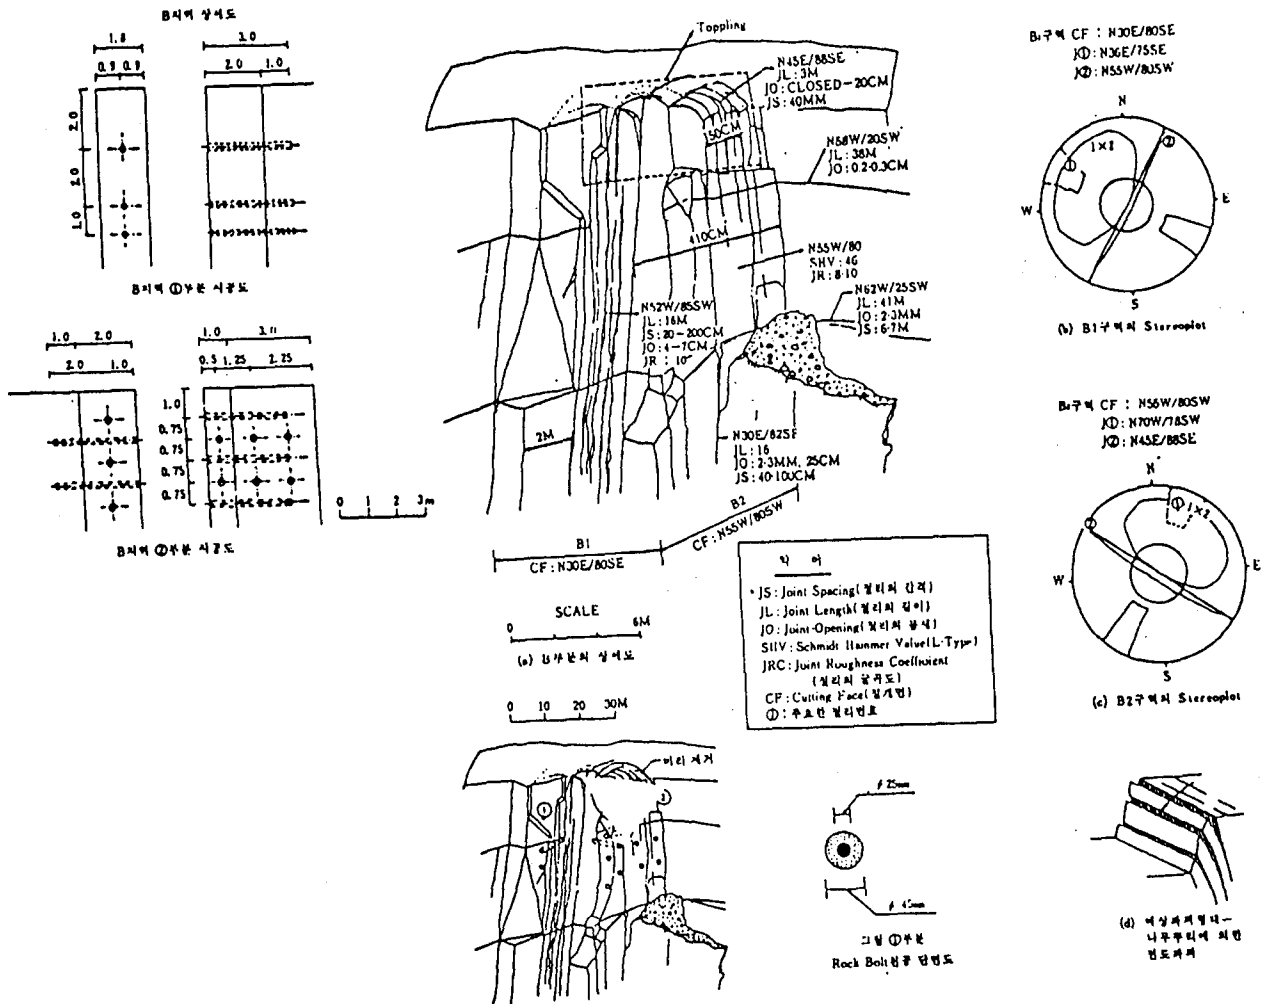 B지역 상세도
1.8
0.9 0.9
2.0
2.0
1.0
3.0
2.0 1.0
B지역 ①부분 시공도
1.0 2.0
2.0 1.0
1.0 3.0
0.5 1.25 2.25
1.0
0.75
0.75
0.75
0.75
0 1 2 3m
B지역 ②부분 시공도
Toppling
N45E/88SE
JL:3M
JO:CLOSED-20CM
JS:40MM
50CM
N58W/20SW
JL:38M
JO:0.2-0.3CM
410CM
N55W/80
SHV:46
JR:8-10
N62W/25SW
JL:41M
JO:2-3MM
JS:6-7M
N52W/85SW
JL:16M
JS:20-200CM
JO:4-7CM
JR:10
2M
N30E/82SE
JL:16
JO:2-3MM, 25CM
JS:40-100CM
B1
CF:N30E/80SE
B2
CF:N55W/80SW
SCALE
0 6M
(a) B부분의 상세도
약 어
JS:Joint Spacing(절리의 간격)
JL:Joint Length(절리의 길이)
JO:Joint-Opening(절리의 틈새)
SHV:Schmidt Hammer Value(L-Type)
JRC:Joint Roughness Coefficient
(절리의 굴곡도)
CF:Cutting Face(절개면)
①:주요한 절리번호
B₁구역 CF : N30E/80SE
J①: N36E/75SE
J②: N55W/80SW
N
W
E
S
① 1×2 ②
(b) B1구역의 Stereoplot
CF : N55W/80SW
J①: N70W/78SW
J②: N45E/88SE
N
W
E
S
② ① 1×2
(c) B2구역의 Stereoplot
0 10 20 30M
머리 제거
①
φ 25mm
φ 45mm
그림 ①부분
Rock Bolt천공 단면도
(d) 예상파괴형태-
나무뿌리에 의한
전도파괴